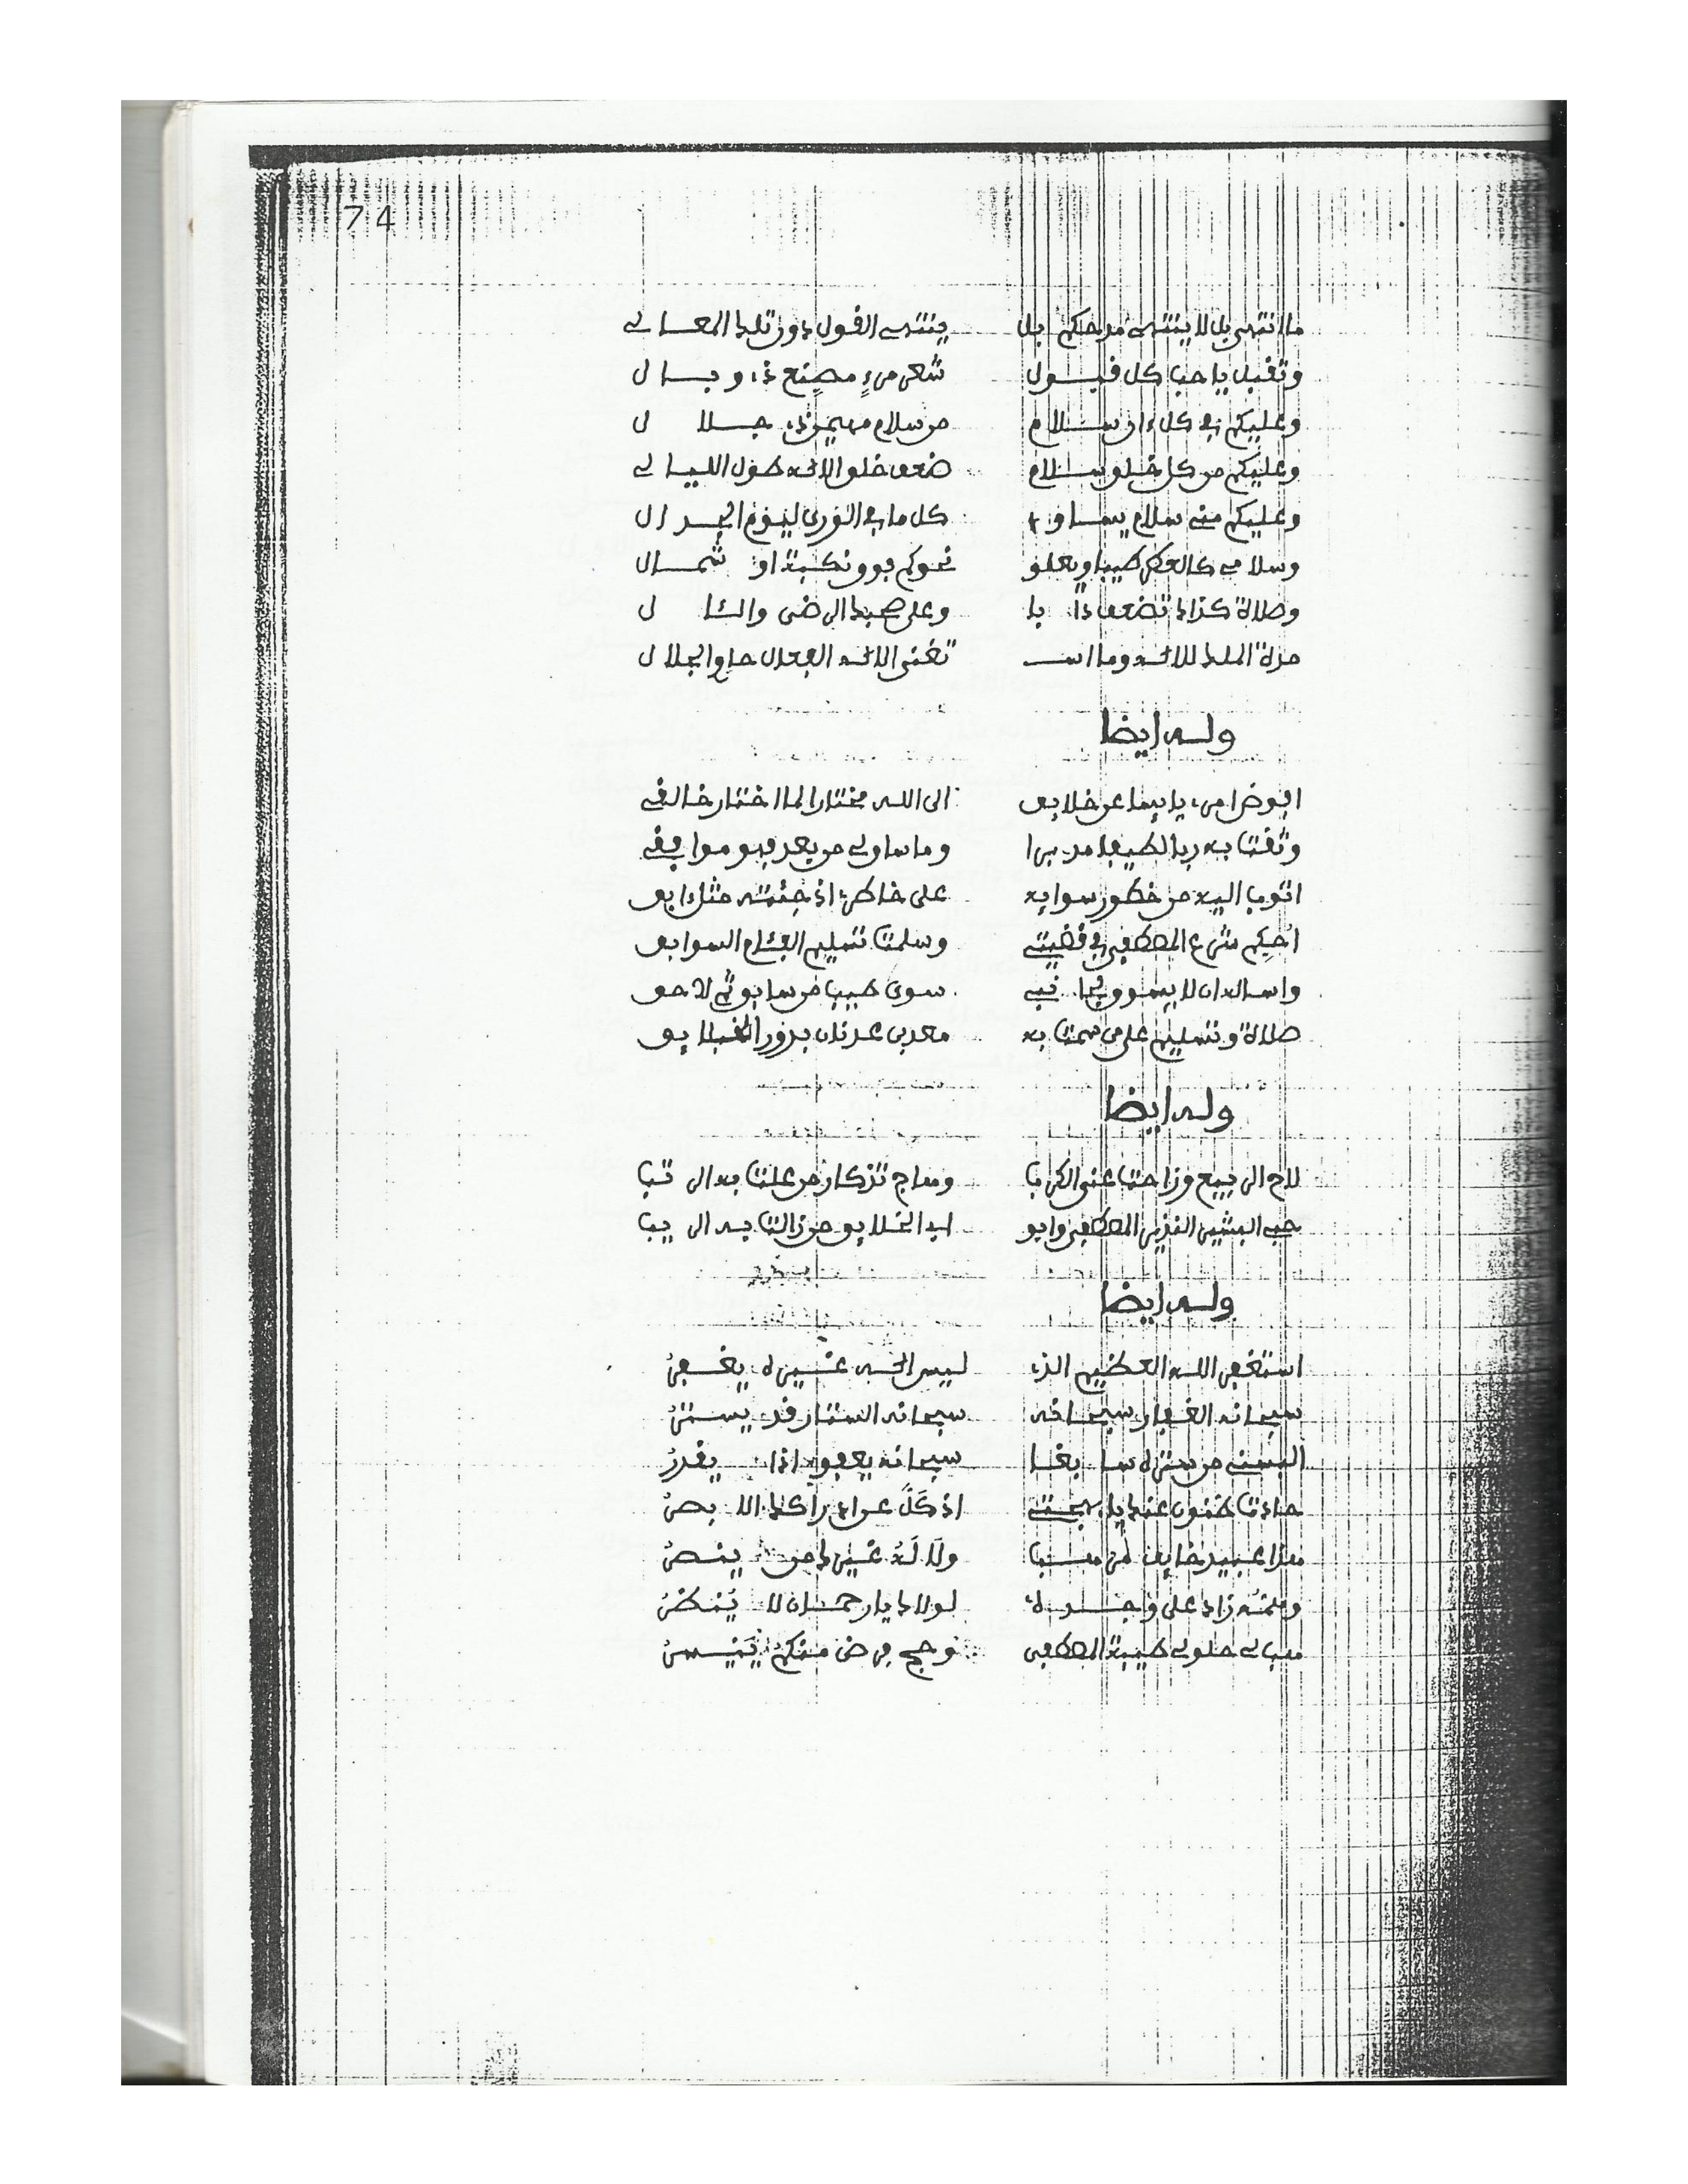 74
ما انتهى بل لا ينتهي مدحكم بل ينتهي القول دون تلك المعالي
وتقبل يا حب كل قبول شعر مرء مصنع ذي وبال
وعليكم في كل ءان سلام من سلام مهيمن ذي جلال
وعليكم من كل خلق سلام ضعف خلق الاله طول الليالي
وعليكم مني سلام يساوي كل ما في الورى ليوم الجدال
وسلامي كالعطر طيبا ويعلو نحوكم فوق نكبة او شمال
وصلاة كذاك تضعف ذا يا وعلى صحبك الرضى والئال
مدة الملك للاله وما اسـ تغنى الاله الفعال حاو الجلال
وله ايضا
افوض امري يائسا عن خلائق الى الله مختارا لما اختار خالقي
وثقت به ربا لطيفا مدبرا وما ساءلي من بعد فهو موافقي
اتوب اليه من خطور سوايه على خاطري اذ جئته مثل ءابق
احكم شرع المصطفى في قضيتي وسلمت تسليم الفئام السوابق
واساله ان لا يسوق لجانبي سوى طيب من سابق ثم لاحق
صلاة وتسليم على من سمت به معد بن عدنان بدور الخلائق
وله ايضا
لاح الربيع وزاحت عني الكربا وهاج تذكار من علت به الرتبا
حب البشير النذير المصطفى وابو ابد الخلائق من زالت به الريبا
وله ايضا
استغفر الله العظيم الذي ليس اله غيره يغفر
سبحانه الغفار سبحانه سبحانه الستار قد يستر
البسني من ستره سابغا سبحانه يعفو اذا يقدر
حاذت ظنون عنك يا بهجتي اذ كل عن ادراكك البصر
هذا عبيد خايف من هبا ولا له غيرك من ينصر
ومنه زاد على وجده لولاك يا رحمان لا ينظر
هب لي حلولي طيبة المصطفى وحج فرض منكم ييسر